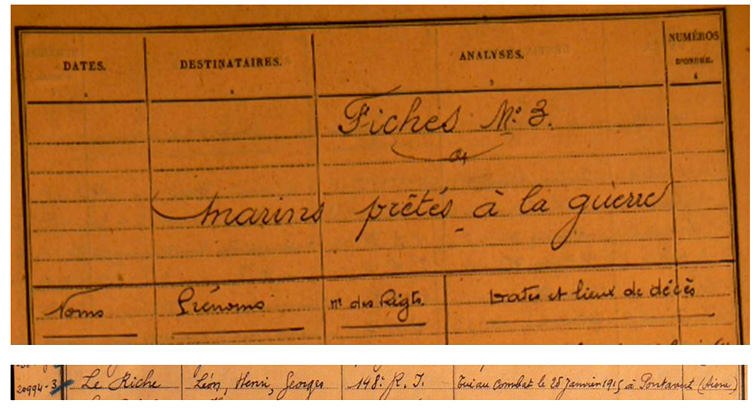 DATES. DESTINATAIRES. ANALYSES. NUMÉROS D'ORDRE.
3 4
Fiches N° 3.
marins prêtés à la guerre
Noms Prénoms n° des Régts. Dates et lieux de décès
20994-3 Le Riche Léon, Henri, Georges 148e R. I. tué au combat le 28 Janvier 1915 à Pontavert (Aisne)